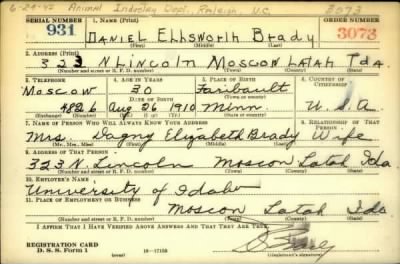 6-24-42 Animal Industry Dept. Raleigh N.C. 3073
SERIAL NUMBER 1. NAME (Print) ORDER NUMBER
931 DANIEL ELLSWORTH BRADY 3073
(First) (Middle) (Last)
2. ADDRESS (Print)
323 N LINCOLN MOSCOW LATAH IDA.
(Number and street or R. F. D. number) (Town) (County) (State)
3. TELEPHONE 4. AGE IN YEARS 5. PLACE OF BIRTH 6. COUNTRY OF CITIZENSHIP
Moscow 30 Faribault
DATE OF BIRTH
4826 Aug 26 1910 Minn. U.S.A.
(Exchange) (Number) (Mo.) (Day) (Yr.) (Town or county) (State or country)
7. NAME OF PERSON WHO WILL ALWAYS KNOW YOUR ADDRESS 8. RELATIONSHIP OF THAT PERSON
Mrs. Dagny Elizabeth Brady Wife
(Mr., Mrs., Miss) (First) (Middle) (Last)
9. ADDRESS OF THAT PERSON
323 N. Lincoln Moscow Latah Ida
(Number and street or R. F. D. number) (Town) (County) (State)
10. EMPLOYER'S NAME
University of Idaho
11. PLACE OF EMPLOYMENT OR BUSINESS
Moscow Latah Ida
(Number and street or R. F. D. number) (Town) (County) (State)
I AFFIRM THAT I HAVE VERIFIED ABOVE ANSWERS AND THAT THEY ARE TRUE.
REGISTRATION CARD
D. S. S. Form 1 16-17105 (Registrant's signature)